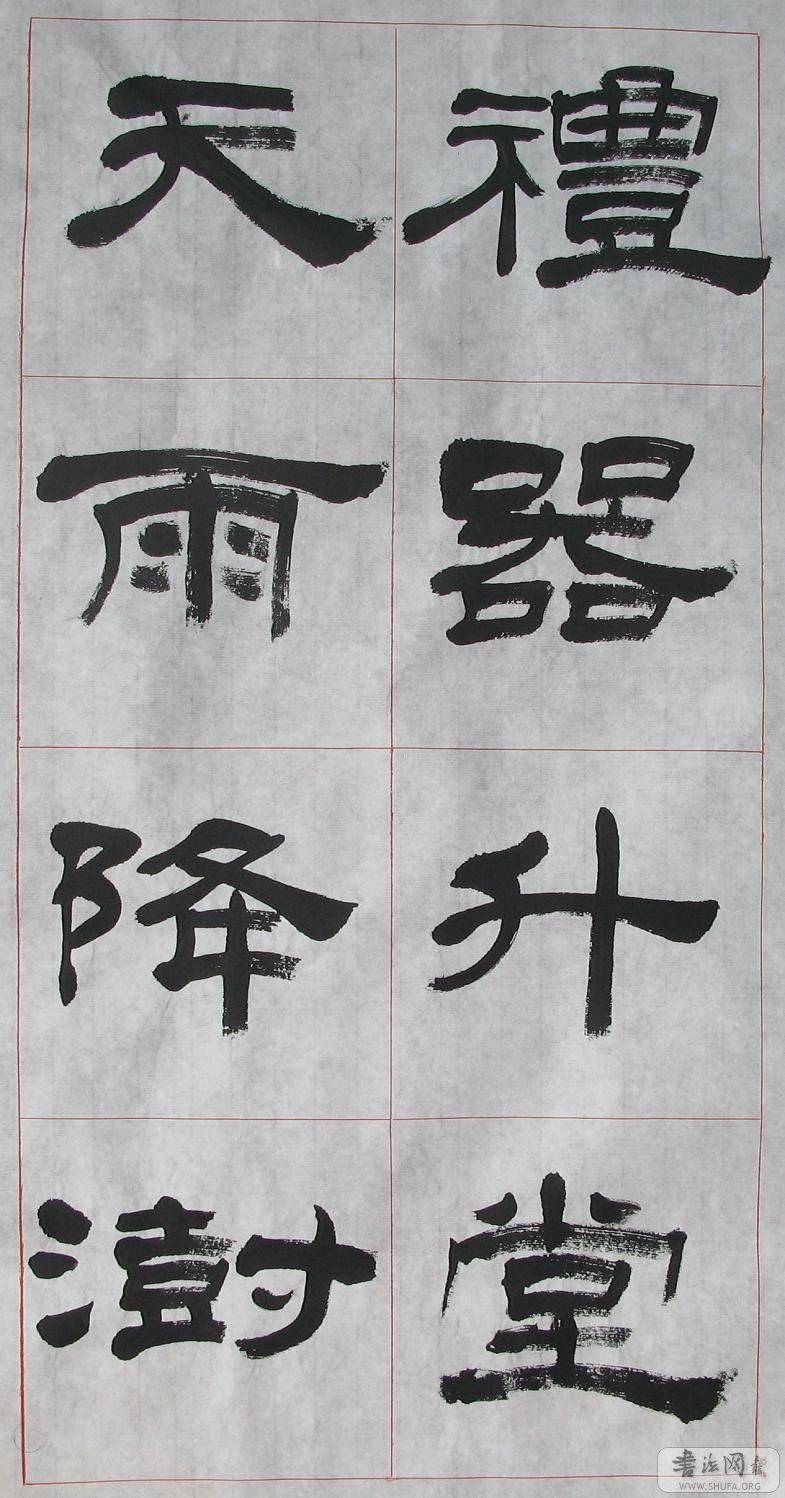 禮器升堂
天雨降澍
书法网
WWW.SHUFA.ORG